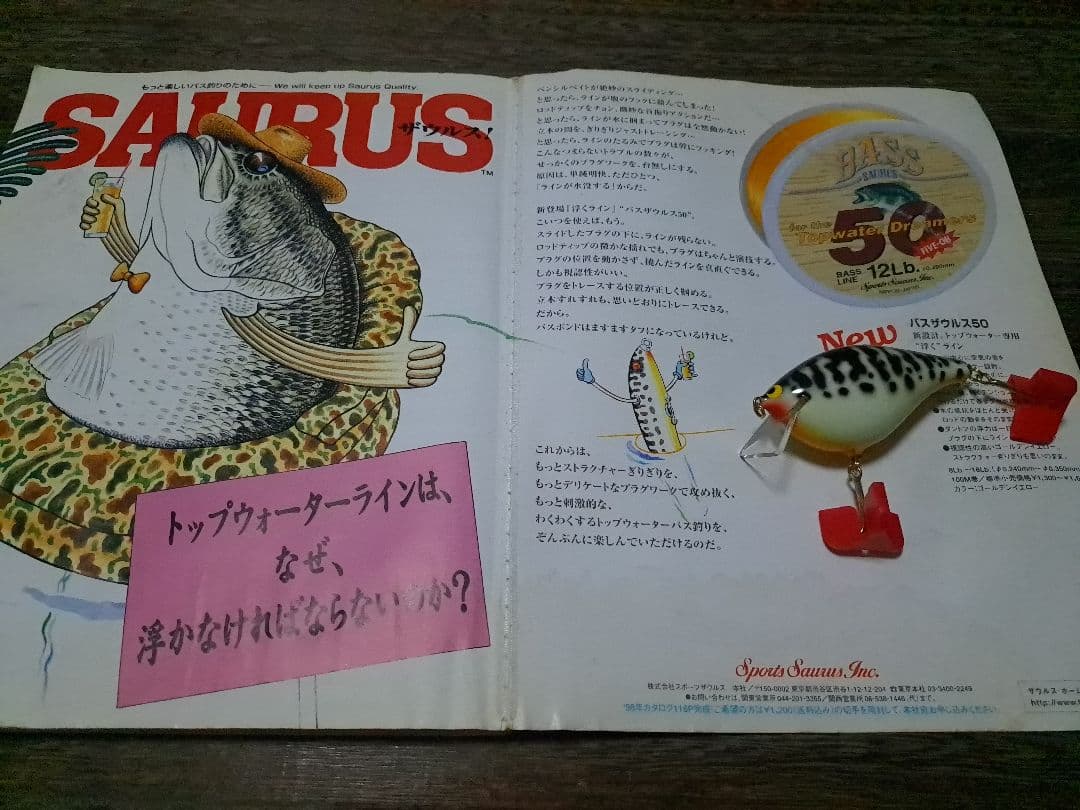 もっと楽しいバス釣りのために — We will keep up Saurus Quality
SAURUS
ザウルス!
TM
トップウォーターラインは、
なぜ、
浮かなければならないのか?
ペンシルベイトが絶妙のスライディング…
と思ったら、ラインが腹のフックに絡んでしまった!
ロッドティップをチョン、微妙な首振りアクションだ…
と思ったら、ラインが水に刺まってプラグは全然動かない!
立木の間を、ぎりぎりジャストトレーシング…
と思ったら、ラインのたるみでプラグは幹にフッキング!
こんなつまらないトラブルの数々が、
せっかくのプラグワークを、台無しにする。
原因は、単純明快、ただひとつ、
「ラインが水没する」からだ。
新登場「浮くライン」“バスザウルス50”。
こいつを使えば、もう。
スライドしたプラグの下に、ラインが残らない。
ロッドティップの微かな揺れでも、プラグはちゃんと演技する。
プラグの位置を動かさず、撓んだラインを真直ぐできる。
しかも視認性がいい。
プラグをトレースする位置が正しく掴める。
立木すれすれも、思いどおりにトレースできる。
だから。
バスポンドはますますタフになっているけれど。
これからは、
もっとストラクチャーぎりぎりを、
もっとデリケートなプラグワークで攻め抜く、
もっと刺激的な、
わくわくするトップウォーターバス釣りを、
ぞんぶんに楽しんでいただけるのだ。
BASS
SAURUS
for the
Topwater Dreamers
50
FIVE-OH
BASS
LINE
12Lb.
Sports Saurus, Inc.
New
バスザウルス50
新設計、トップウォーター専用
“浮く”ライン
ストラクチャーぎりぎりも思いのまま。
8Lb
100M巻/標準小売価格¥1,300〜
カラー:ゴールデンイエロー
Sports Saurus, Inc.
株式会社スポーツザウルス 本社/〒150-0002 東京都渋谷区渋谷1-12-12-204 ☎東京本社 03-3400-2249
●お問い合わせは、関東営業所 044-201-3355/関西営業所 06-538-1446 (代)まで。
'98年カタログ116P完成・ご希望の方は¥1,200(送料込み)の切手を同封して、本社宛お申し込みください。
ザウルス ホー
http://www.